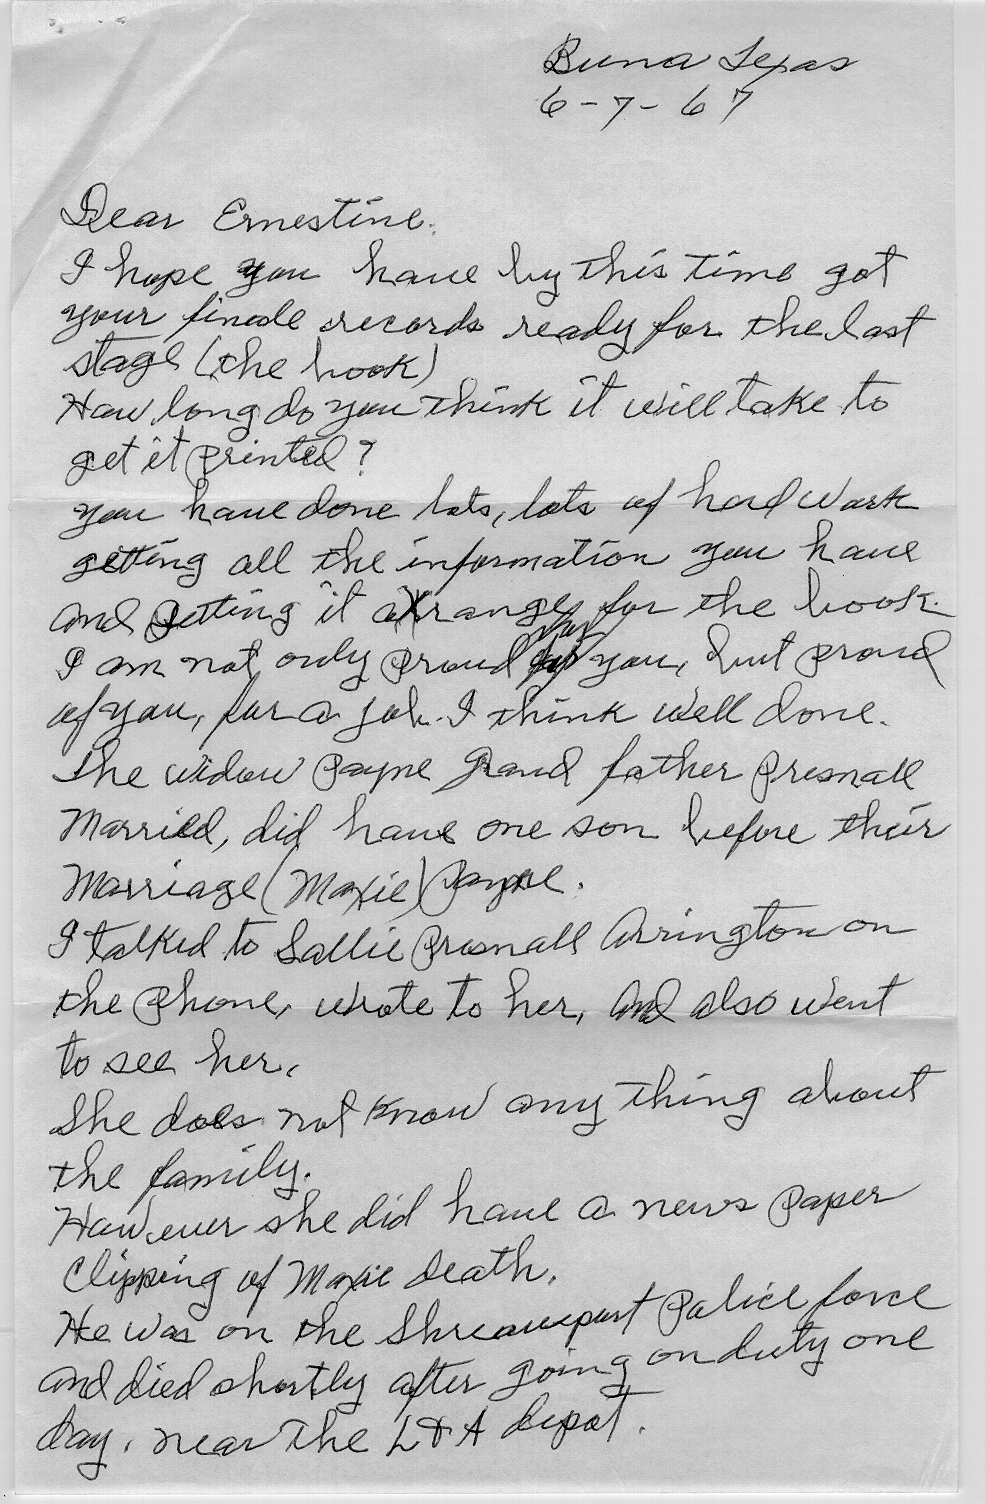 Buna Texas
6-7-67
Dear Ernestine.
I hope you have by this time got
your finale records ready for the last
stage (the book)
How long do you think it will take to
get it printed?
you have done lots, lots of hard work
getting all the information you have
and getting it arrange for the book.
I am not only proud for you, but proud
of you, for a job. I think well done.
The widow Payne Grand father Presnall
Married, did have one son before their
Marriage (Moxie) Payne.
I talked to Sallie Presnall Arrington on
the phone, wrote to her, and also went
to see her.
She does not know any thing about
the family.
However she did have a news paper
Clipping of Moxie death.
He was on the Shreaveport Police force
and died shortly after going on duty one
day, near the L & A depot.